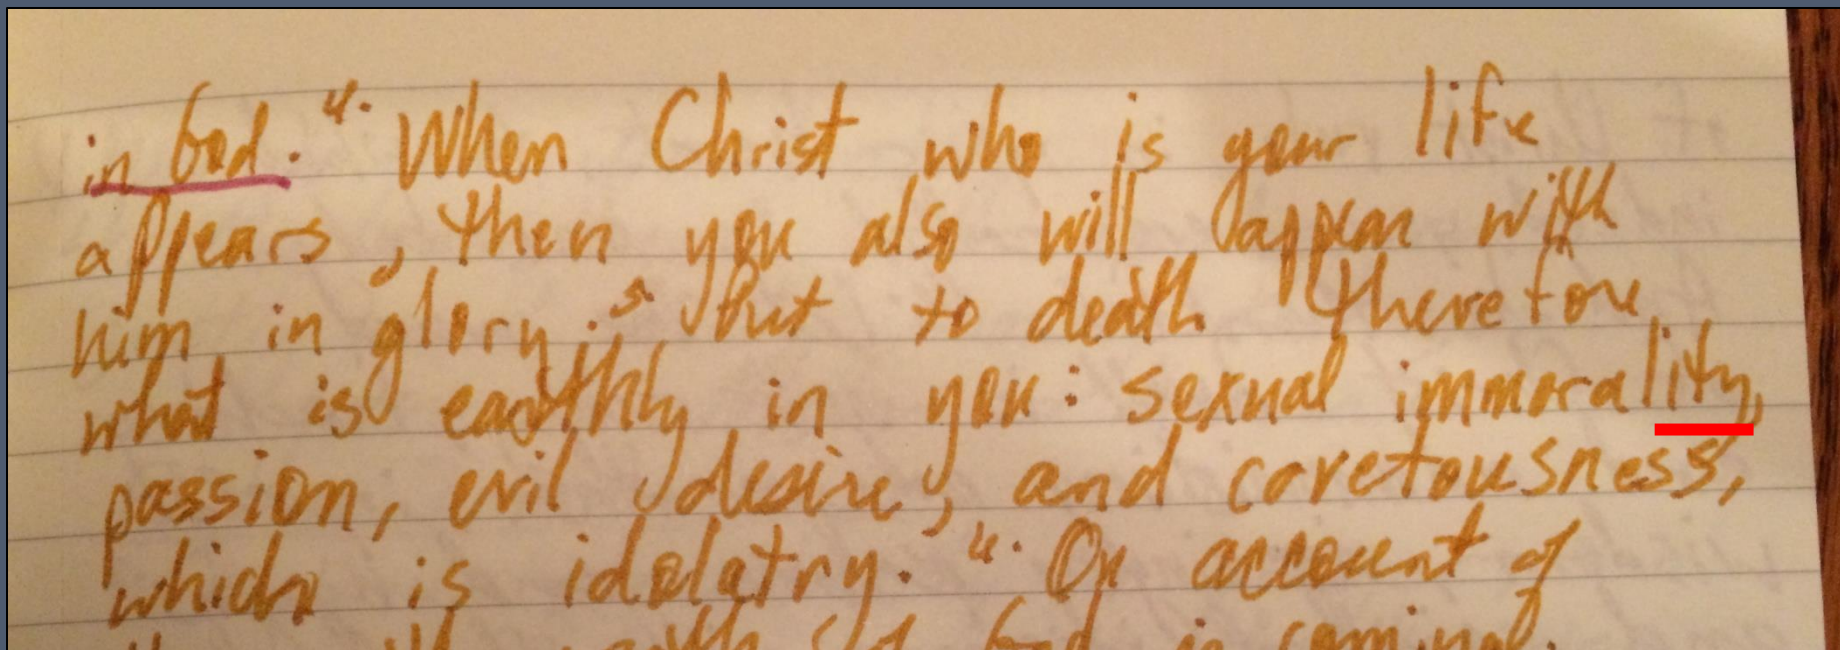 in God. 4. When Christ who is your life
appears, then you also will appear with
him in glory. 5. Put to death therefore
what is earthly in you: sexual immorality,
passion, evil desire, and covetousness,
which is idolatry. 6. On account of
God is coming.